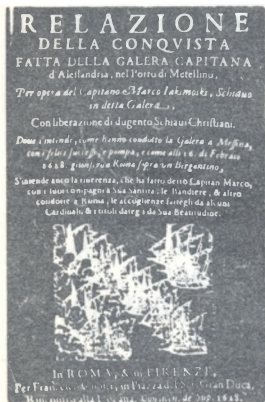 RELAZIONE
DELLA CONQVISTA
FATTA DELLA GALERA CAPITANA
d'Alessandria, nel Porto di Metellino,
Per opera del Capitano Marco Iakimoski, Schiauo
in detta Galera,
Con liberazione di dugento Schiaui Christiani.
Doue s'intende, come hanno condotto la Galera a Messina,
con felice successo, e pompa, e come alli 16. di Febraio
1628. giunsi in Roma sopra un Bergantino,
S'intende anco la riuerenza, che ha fatto detto Capitan Marco,
con i suoi compagni a Sua Santità, le Bandiere, & altro
condotte a Roma, le accoglienze fattegli da alcuni
Cardinali, & i titoli datogli da Sua Beatitudine.
In ROMA, & in FIRENZE,
Per in Piazza del Gran Duca,
1628.